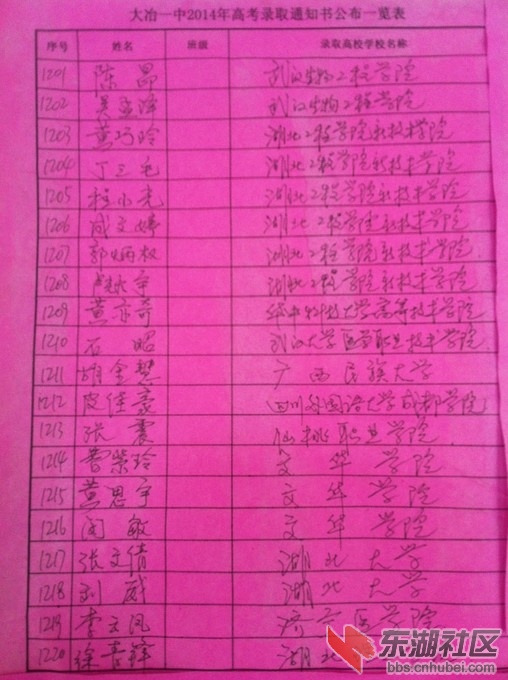 大冶一中2014年高考录取通知书公布一览表
序号 姓名 班级 录取高校学校名称
1201 陈晶 武汉生物工程学院
1202 吴孟泽 武汉生物工程学院
1203 黄巧玲 湖北工程学院新技术学院
1204 丁三毛 湖北工程学院新技术学院
1205 程小亮 湖北工程学院新技术学院
1206 成文婷 湖北工程学院新技术学院
1207 郭炳权 湖北工程学院新技术学院
1208 宇 湖北工程学院新技术学院
1209 黄亦奇 华中科技大学高等技术学院
1210 石昭 武汉大学医学职业技术学院
1211 胡金慧 广西民族大学
1212 皮佳豪 四川外国语大学成都学院
1213 张震 仙桃职业学院
1214 曹紫玲 文华学院
1215 黄思宇 文华学院
1216 闵敏 文华学院
1217 张文倩 湖北大学
1218 刘威 湖北大学
1219 李文凤 济宁医学院
1220 徐 湖北
东湖社区
bbs.cnhubei.com